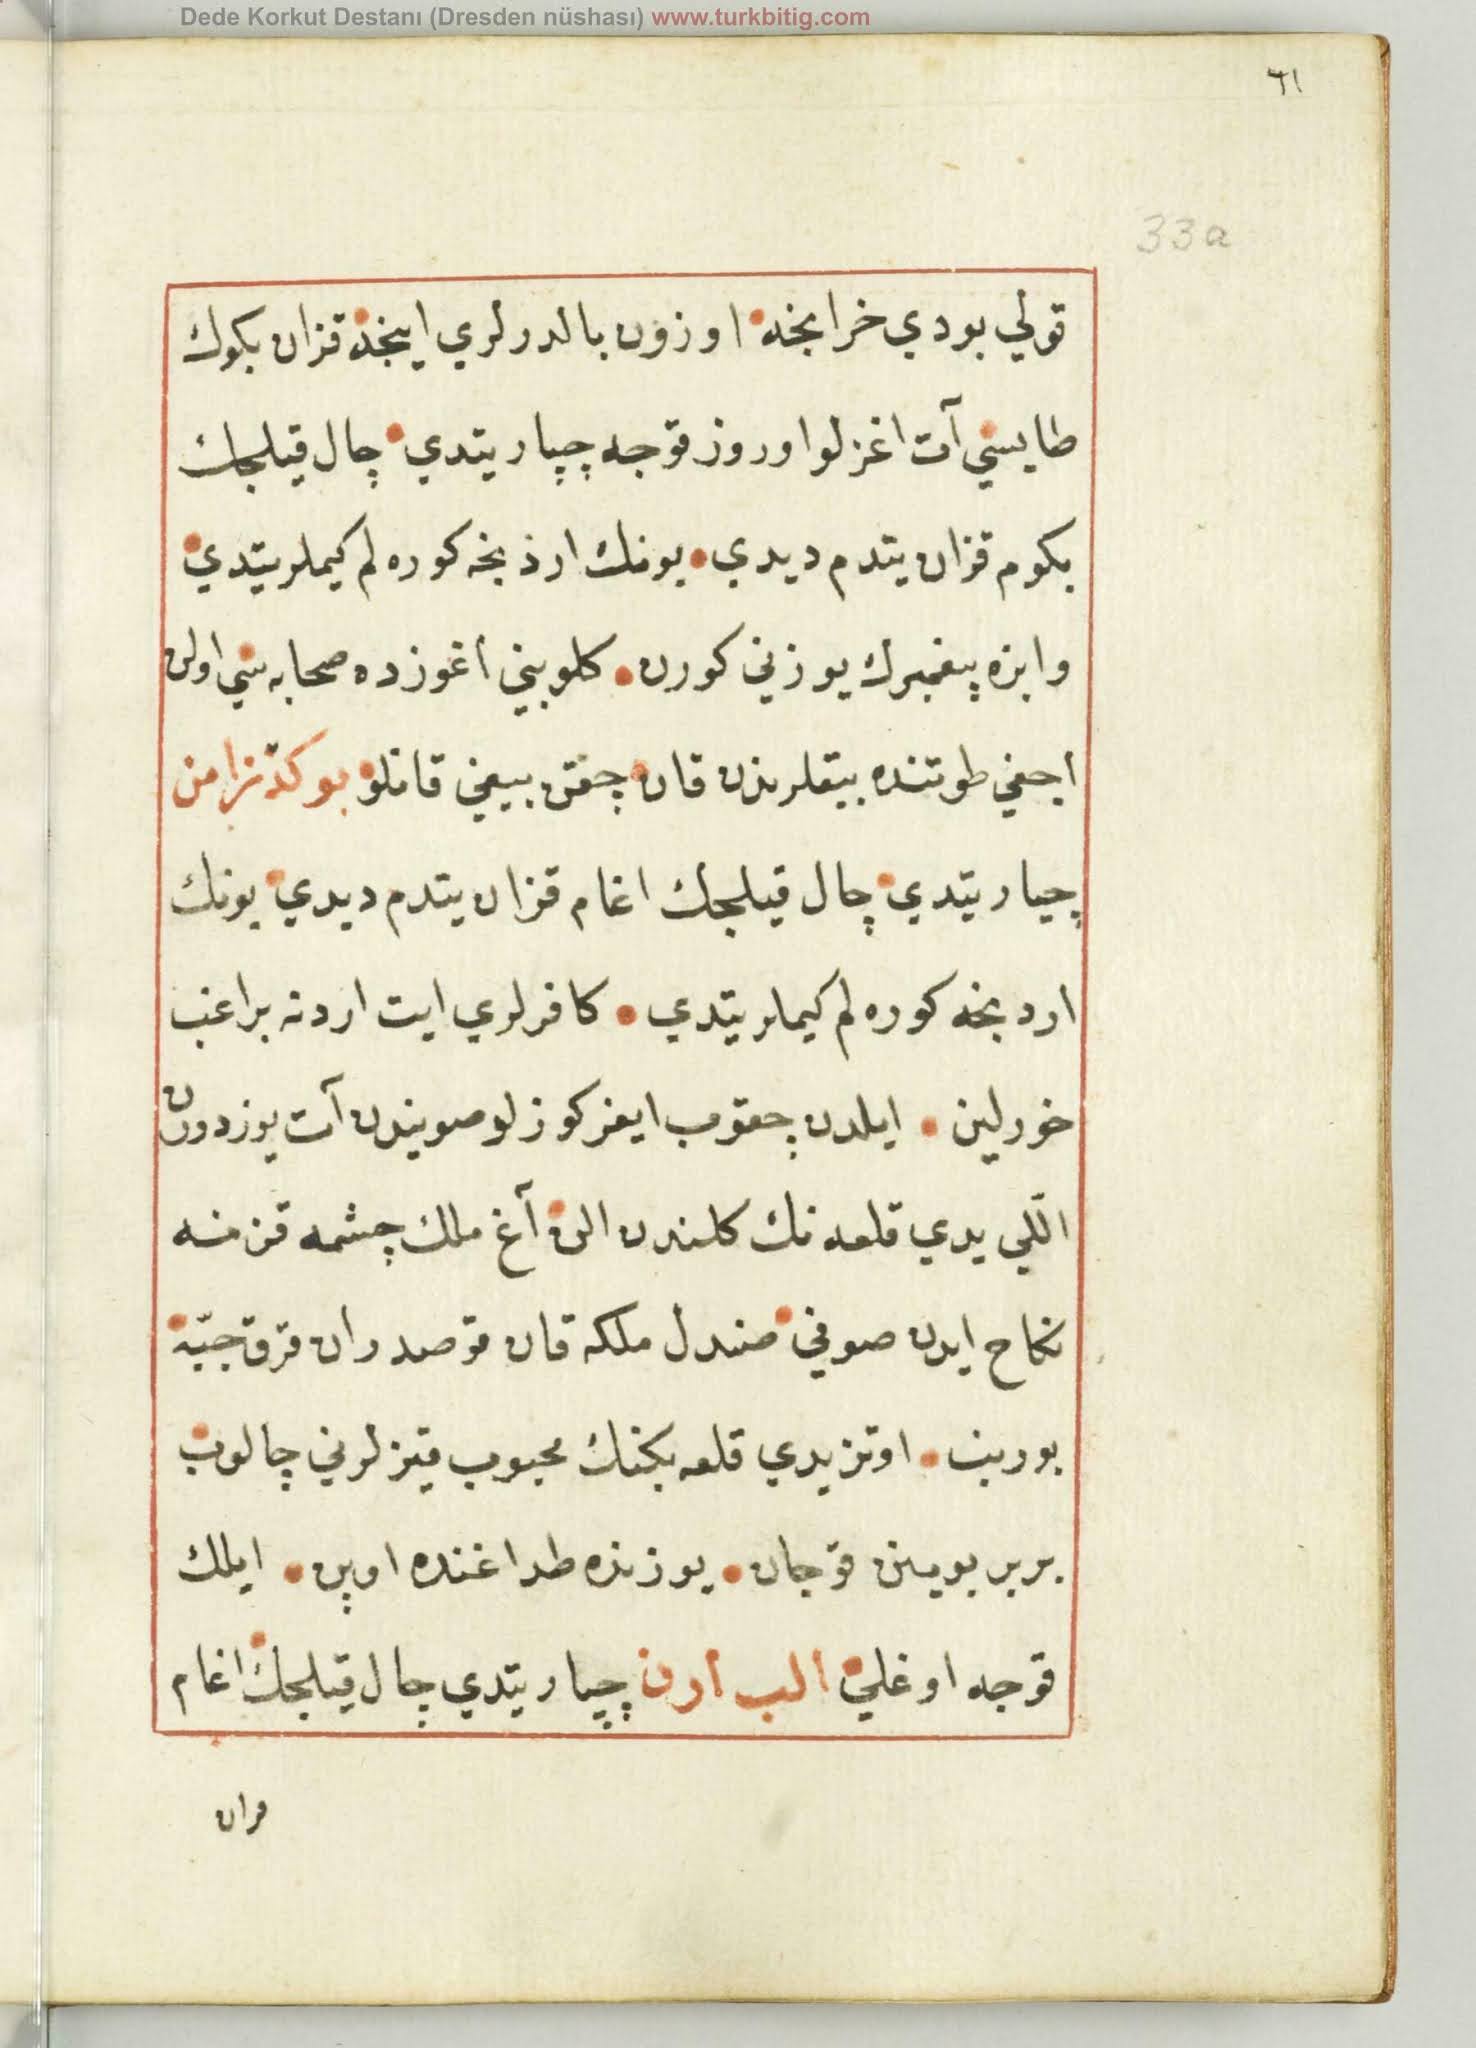 Dede Korkut Destanı (Dresden nüshası) www.turkbitig.com
٦١
33a
قولي بودي خرا بخه اوزون بالدرلري اينجه قزان بكوك
طايسي آت اغزلو اوروز قوجه چپار يتدي چال قيلجك
بكوم قزان يتدم ديدي يونك ارد بخه كوره لم كيملر يتدي
وابزه پيغمبرك يوزني كورن كلوبني اغوزده صحابه سي اولن
اجغي طوتنده بيقلرندن قان چقن بيغي قانلو بوكدز امن
چپار يتدي چال قيلجك اغام قزان يتدم ديدي يونك
ارد بخه كوره لم كيملر يتدي كافرلري ايت اردنه براغب
خورلين ايلدن چقوب ايغر كوزلو صويندن آت يوزدورن
اللي يدي قلعه نك كلندن الن آغ ملك چشمه قزنه
نكاح ايدن صوفي صندل ملكه قان قوصدران قرق جبّه
بورينب اوتز يدي قلعه بكنك محبوب قيزلرني چالوب
بربر بوينن قوجان يوزنده طداغنده اوپن ايلك
قوجه اوغلي الب ارن چپار يتدي چال قيلجك اغام
قزان